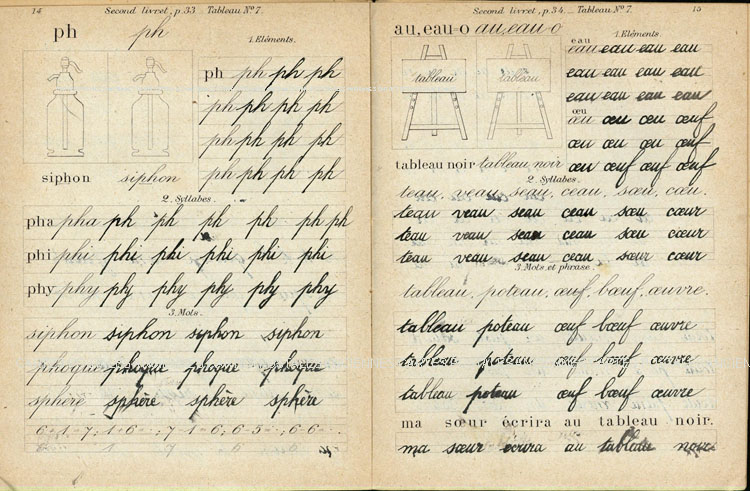 14 Second livret, p.33 _ Tableau Nº 7.
ph ph
1. Eléments.
ph ph ph ph
ph ph ph ph
ph ph ph ph
ph ph ph ph
siphon siphon
2. Syllabes.
pha pha ph ph ph ph ph ph
phi phi phi phi phi phi phi
phy phy phy phy phy phy phy
3. Mots.
siphon siphon siphon siphon
phoque phoque phoque phoque
sphère sphère sphère sphère
Second livret, p.34 _ Tableau Nº 7. 15
au, eau-o au, eau-o
1. Eléments.
tableau tableau
eau
eau eau eau eau
eau eau eau eau
eau eau eau eau
œu
œu œu œu œuf
œu œu œu œuf
œu œuf œuf œuf
tableau noir tableau noir
2. Syllabes.
teau, veau, seau, ceau, sœu, cœu.
teau veau seau ceau sœu cœur
teau veau seau ceau sœu cœur
teau veau seau ceau sœur cœur
3. Mots et phrase.
tableau, poteau, œuf, bœuf, œuvre.
tableau poteau œuf bœuf œuvre
tableau poteau œuf bœuf œuvre
tableau poteau œuf bœuf œuvre
ma sœur écrira au tableau noir.
ma sœur écrira au tableau noir